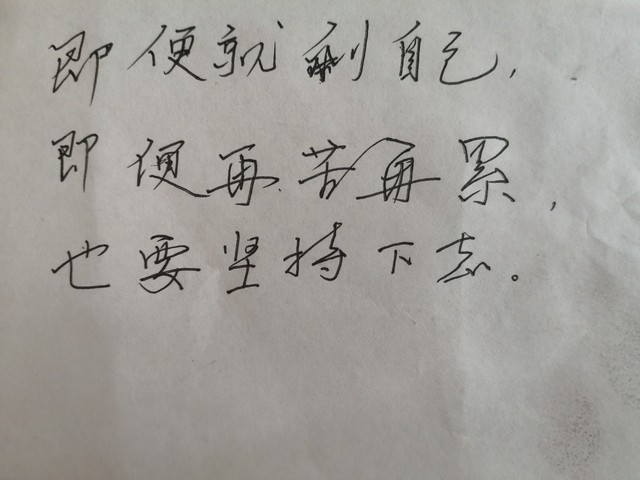 即便就剩自己，
即便再苦再累，
也要坚持下去。